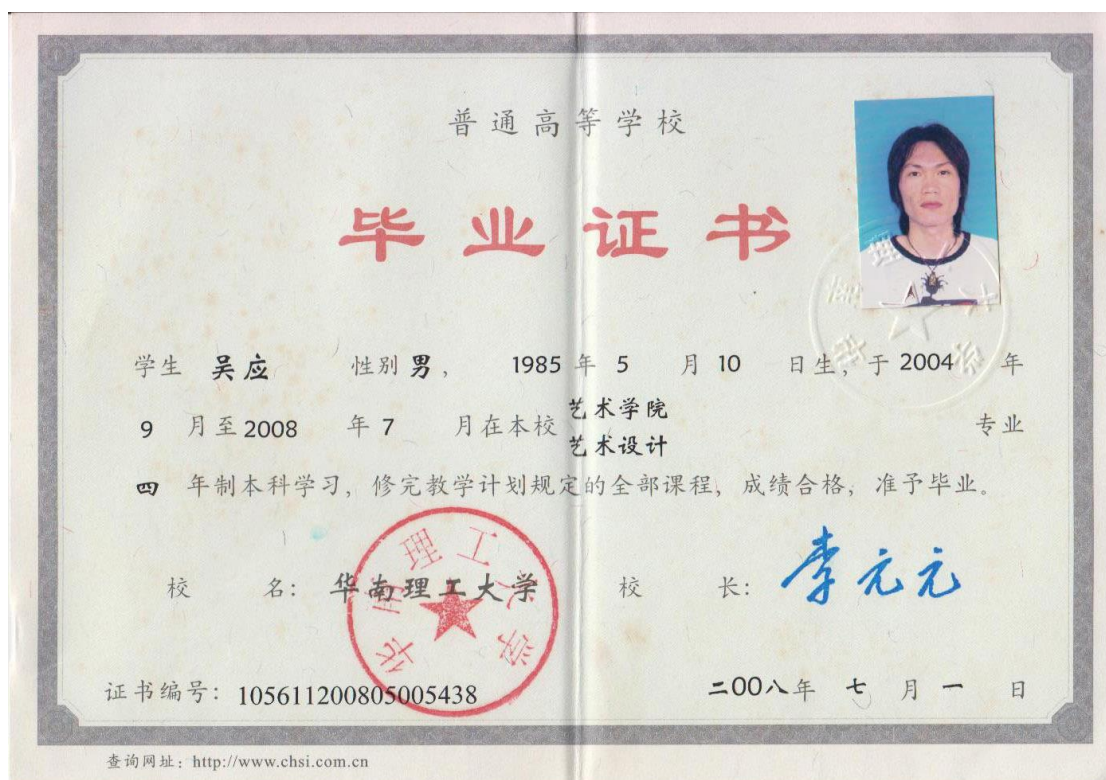 普通高等学校
毕业证书
学生 吴应 性别 男， 1985 年 5 月 10 日生，于 2004 年
9 月至 2008 年 7 月在本校 艺术学院 艺术设计 专业
四 年制本科学习，修完教学计划规定的全部课程，成绩合格，准予毕业。
校 名： 华南理工大学 校 长： 李元元
华南理工大学
证书编号： 105611200805005438 二00八年 七 月 一 日
查询网址：http://www.chsi.com.cn